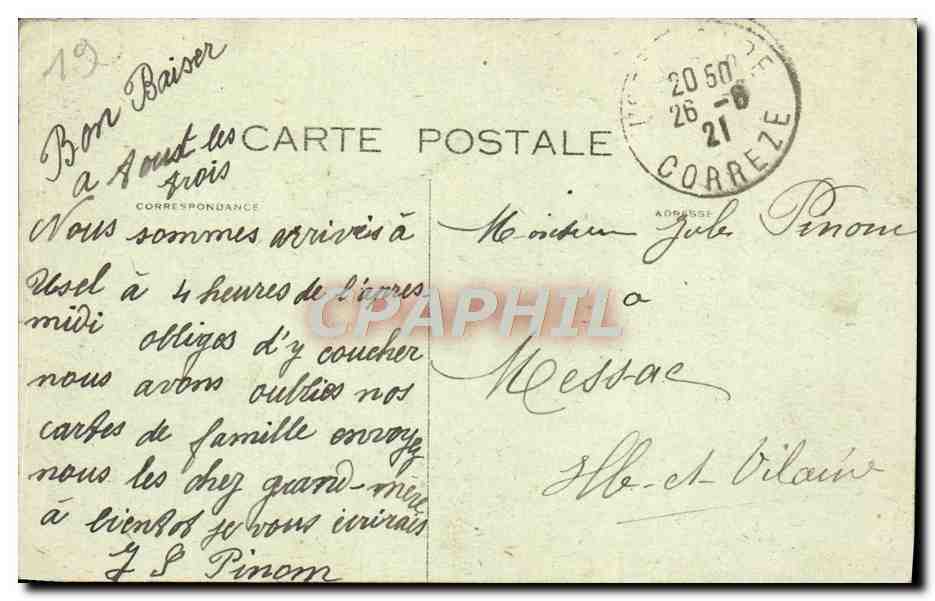 19
Bon Baiser
a tous les
trois
CARTE POSTALE
20 50
26 - 8
21
CORREZE
CORRESPONDANCE
ADRESSE
Nous sommes arrivés à
Usel à 4 heures de l'apres-
midi obliges d'y coucher
nous avons oublies nos
cartes de famille envoyez
nous les chez grand-mère
à bientot je vous écrirais
J S Pinom
Monsieur Jules Pinom
a
Messac
Ille-et-Vilaine
CPAPHIL